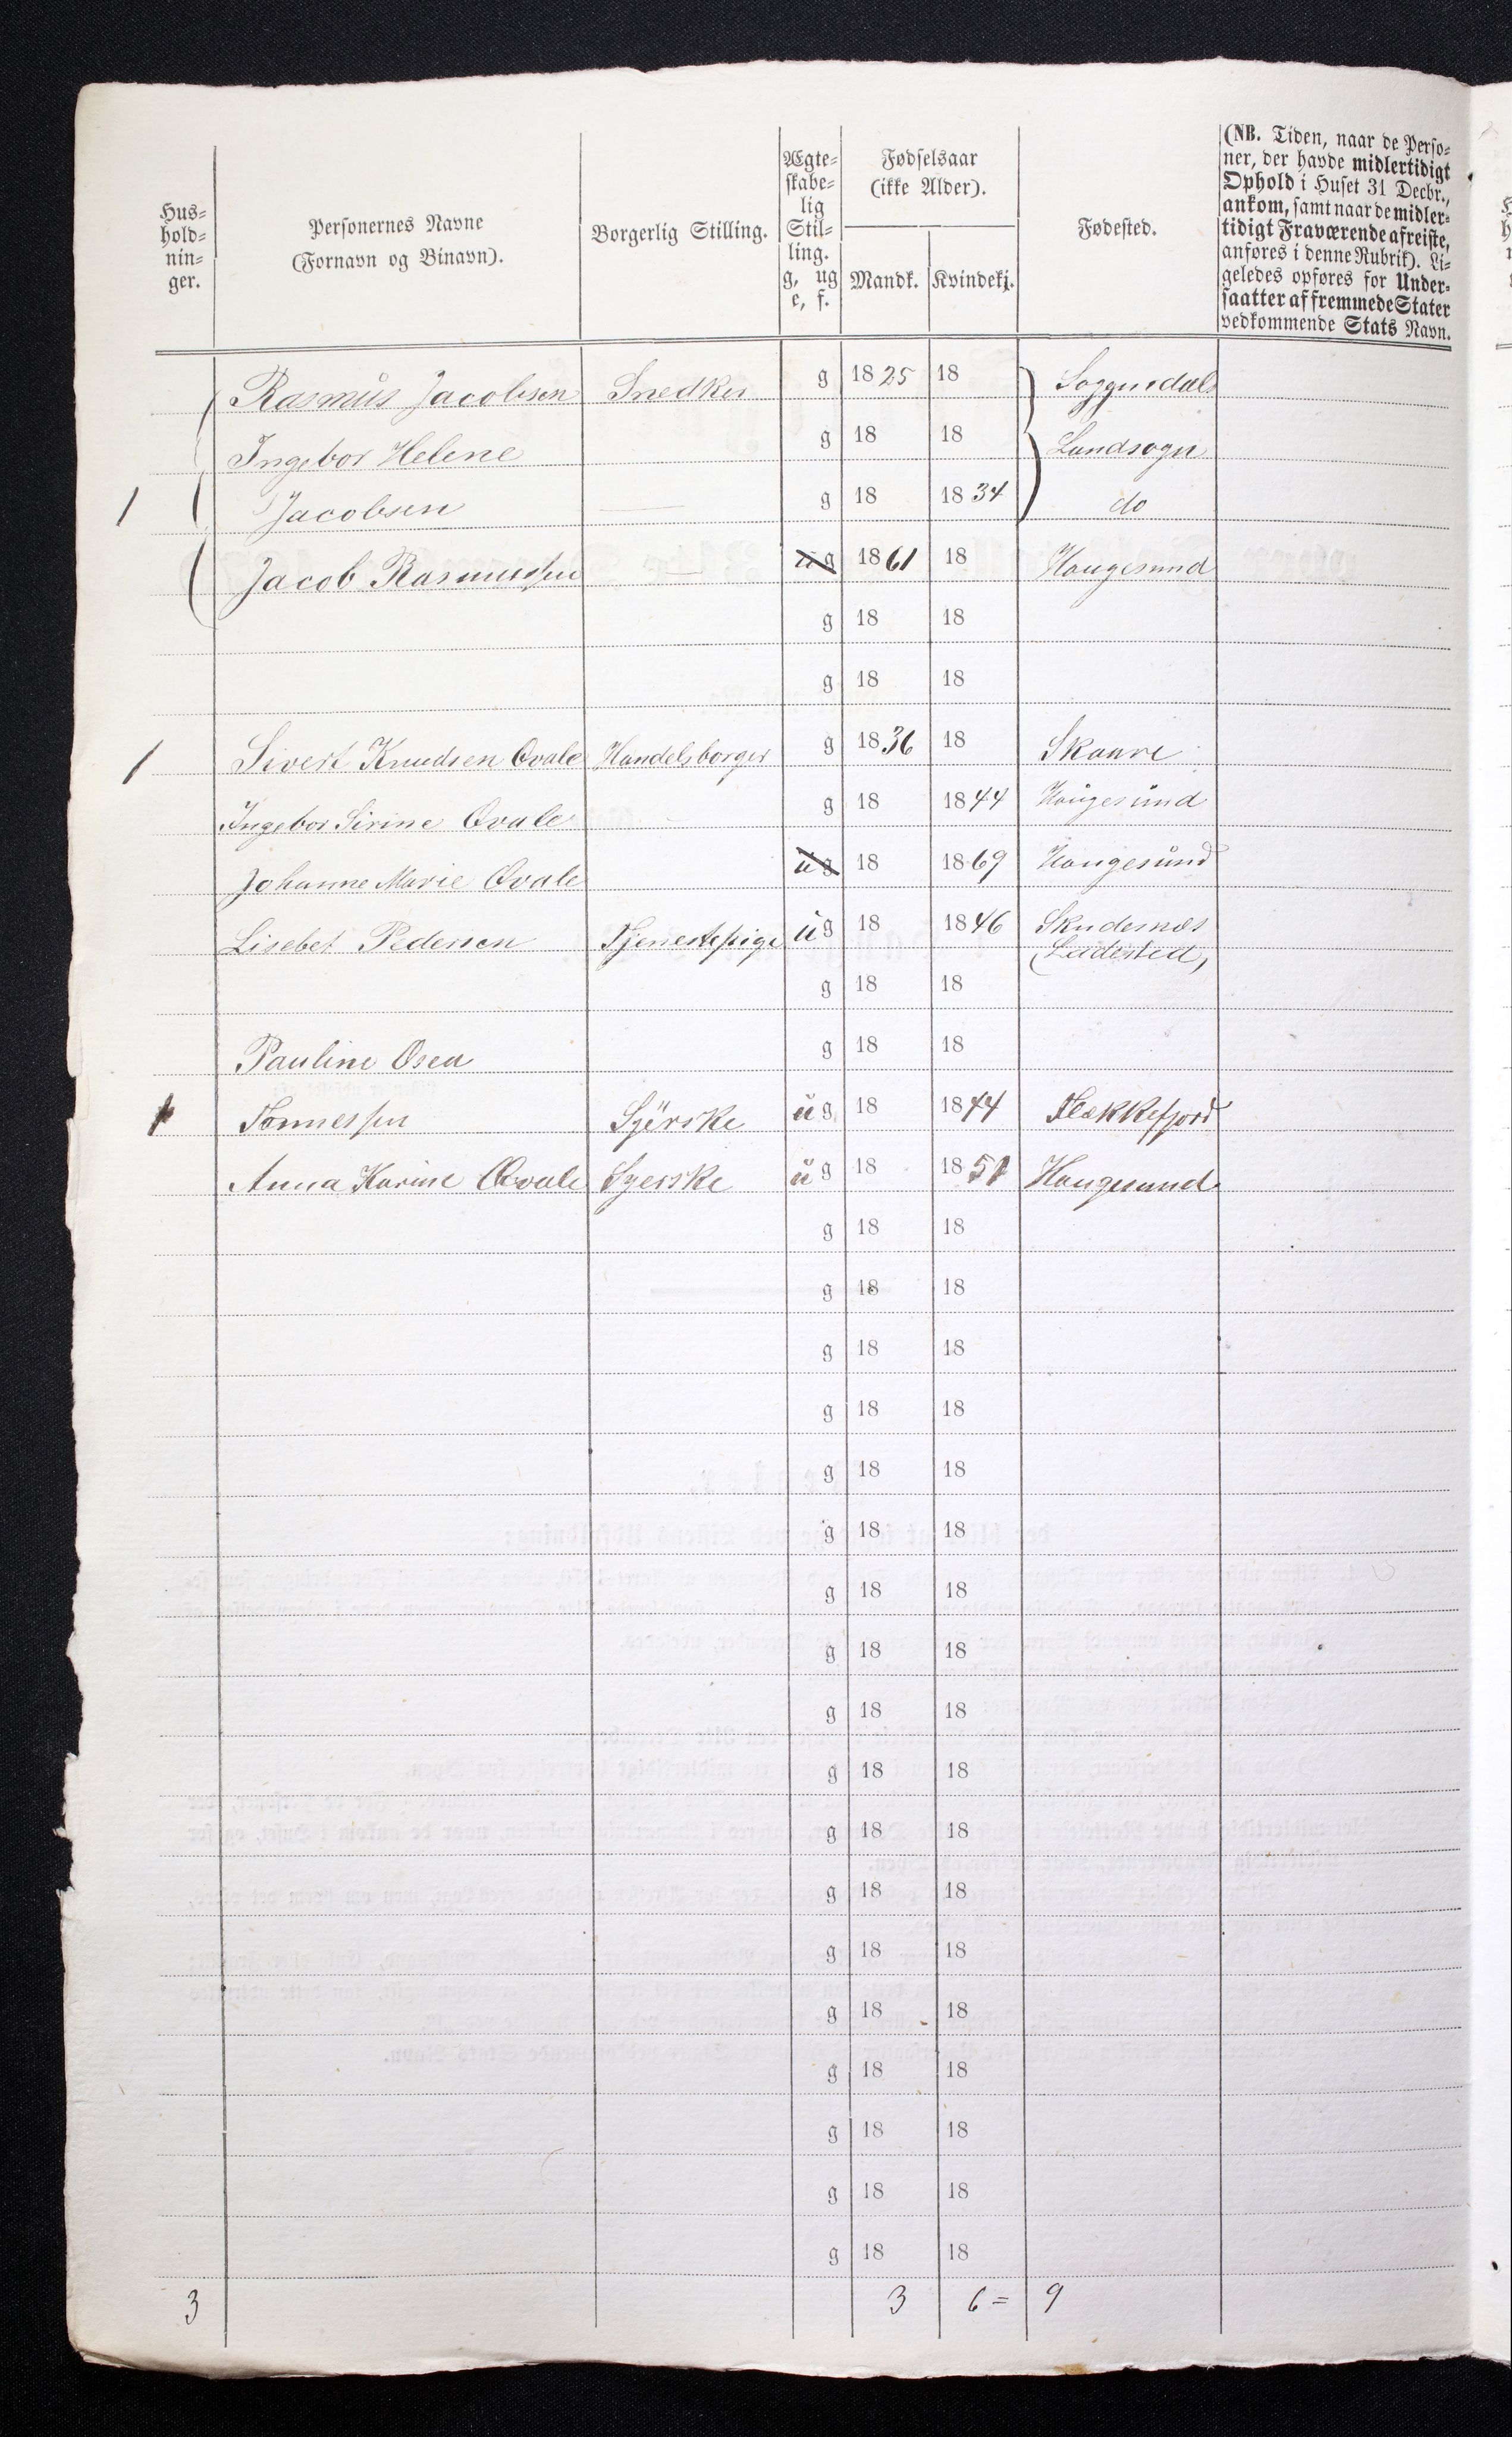 Hus-
hold-
nin-
ger.
Personernes Navne
(Fornavn og Binavn).
Borgerlig Stilling.
Ægte-
skabe-
lig
Stil-
ling.
g, ug
e, f.
Fødselsaar
(ikke Alder).
Mandk.
Kvindekj.
Fødested.
(NB. Tiden, naar de Perso-
ner, der havde midlertidigt
Ophold i Huset 31 Decbr.,
ankom, samt naar de midler-
tidigt Fraværende afreiste,
anføres i denne Rubrik). Li-
geledes opføres for Under-
saatter af fremmede Stater
vedkommende Stats Navn.
Rasmus Jacobsen Snedker g 1825 18 Soggnedals
Ingebor Helene g 18 18 Landsogn
1 Jacobsen — g 18 1834 do
Jacob Rasmussen — ug 1861 18 Haugesund
g 18 18
g 18 18
1 Sivert Knudsen Qvale Handelsborger g 1836 18 Skaare
Ingebor Sirine Qvale g 18 1844 Haugesund
Johanne Marie Qvale ug 18 1869 Haugesund
Lisebet Pedersen Tjenestepige ug 18 1846 Skudesnes
(Ladested)
g 18 18
Pauline Osea g 18 18
1 Tonnessen Syerske ug 18 1844 Flekkefjord
Anna Karine Qvale Syerske ug 18 1851 Haugesund
g 18 18
g 18 18
g 18 18
g 18 18
g 18 18
g 18 18
g 18 18
g 18 18
g 18 18
g 18 18
g 18 18
g 18 18
g 18 18
g 18 18
g 18 18
g 18 18
g 18 18
g 18 18
3 3 6 = 9